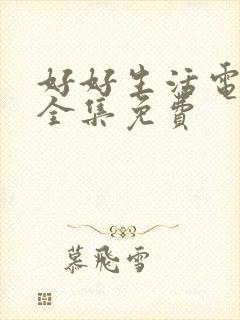 好好生活電
全集免費
慕飛雪